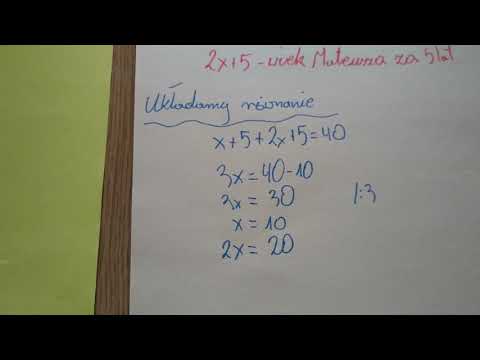 2x+5 - wiek Mateusza za 5 lat
Układamy równanie
x+5+2x+5=40
3x = 40-10
3x = 30 /:3
x = 10
2x = 20